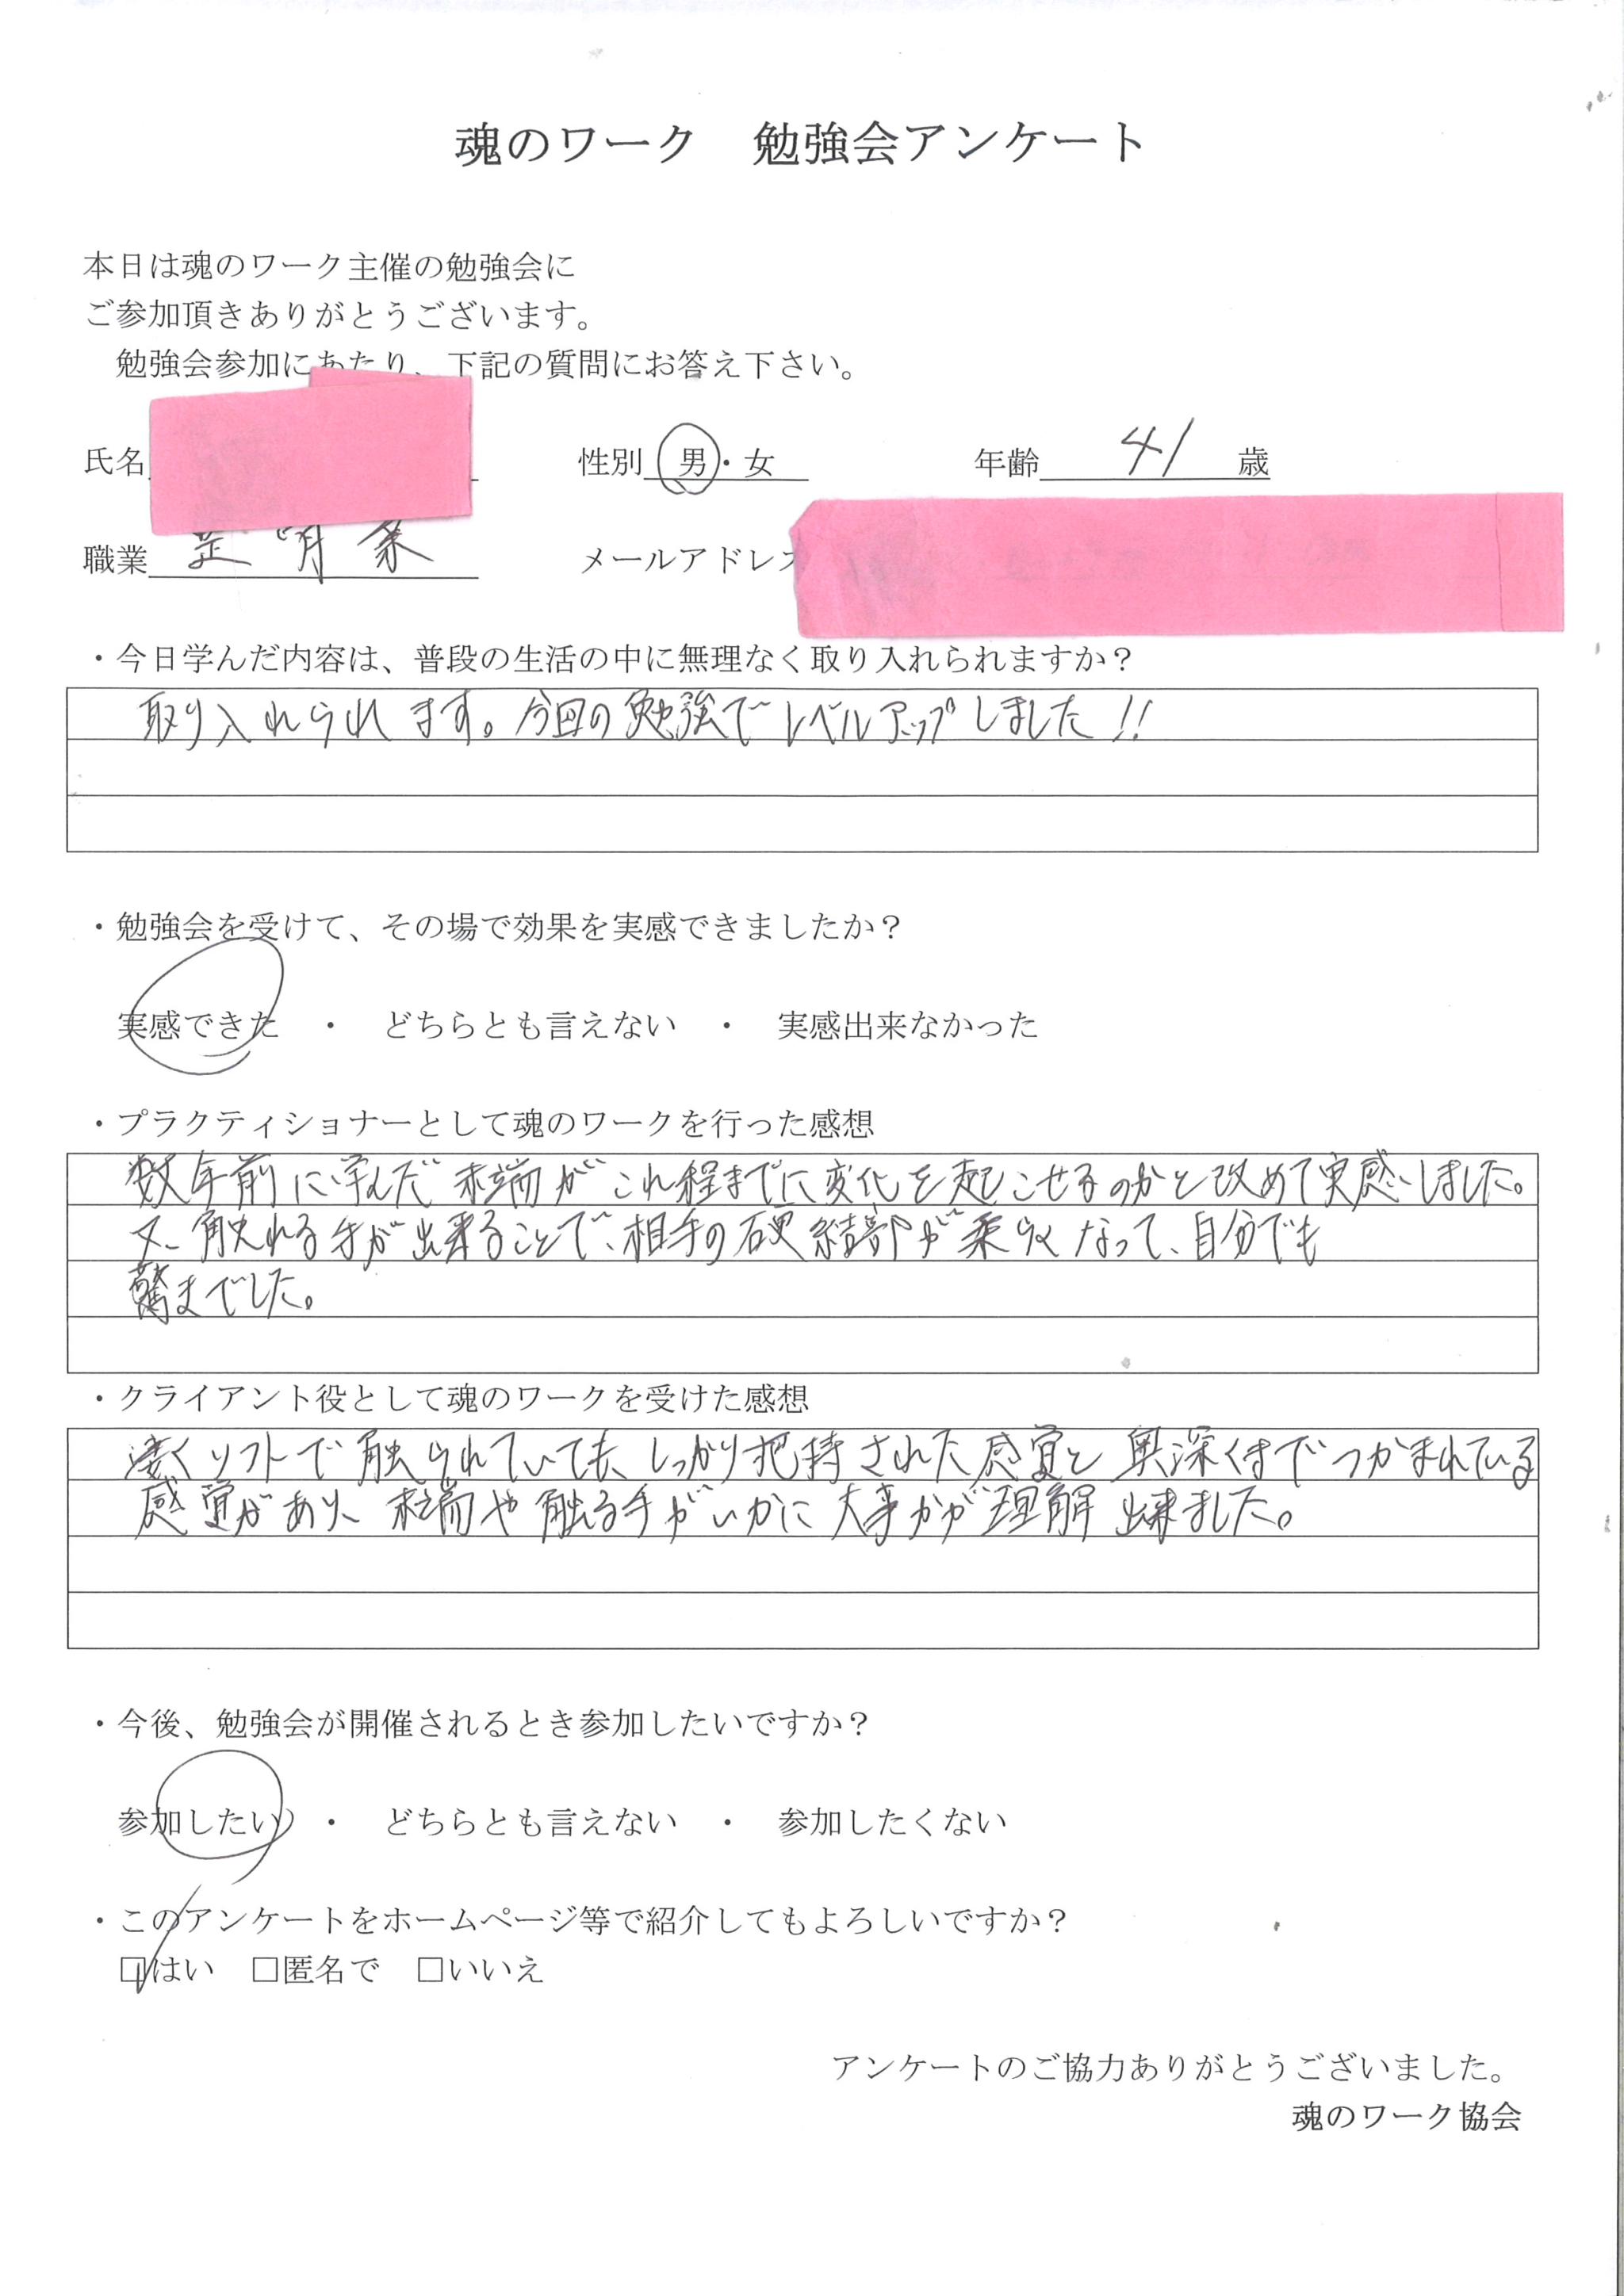 魂のワーク 勉強会アンケート
本日は魂のワーク主催の勉強会に
ご参加頂きありがとうございます。
勉強会参加にあたり、下記の質問にお答え下さい。
氏名 性別 男・女 年齢 41 歳
職業 メールアドレス
・今日学んだ内容は、普段の生活の中に無理なく取り入れられますか？
取り入れられます。今回の勉強でレベルアップしました!!
・勉強会を受けて、その場で効果を実感できましたか？
実感できた ・ どちらとも言えない ・ 実感出来なかった
・プラクティショナーとして魂のワークを行った感想
数年前に学んだ末端がこれ程までに変化を起こせるのかと改めて実感しました。
又、触れる手が出来ることで、相手の硬結部が柔らくなって、自分でも
驚までした。
・クライアント役として魂のワークを受けた感想
凄くソフトで触られていても、しっかり把持された感覚と奥深くまでつかまれている
感覚があり、末端や触る手がいかに大事かが理解出来ました。
・今後、勉強会が開催されるとき参加したいですか？
参加したい ・ どちらとも言えない ・ 参加したくない
・このアンケートをホームページ等で紹介してもよろしいですか？
□はい □匿名で □いいえ
アンケートのご協力ありがとうございました。
魂のワーク協会